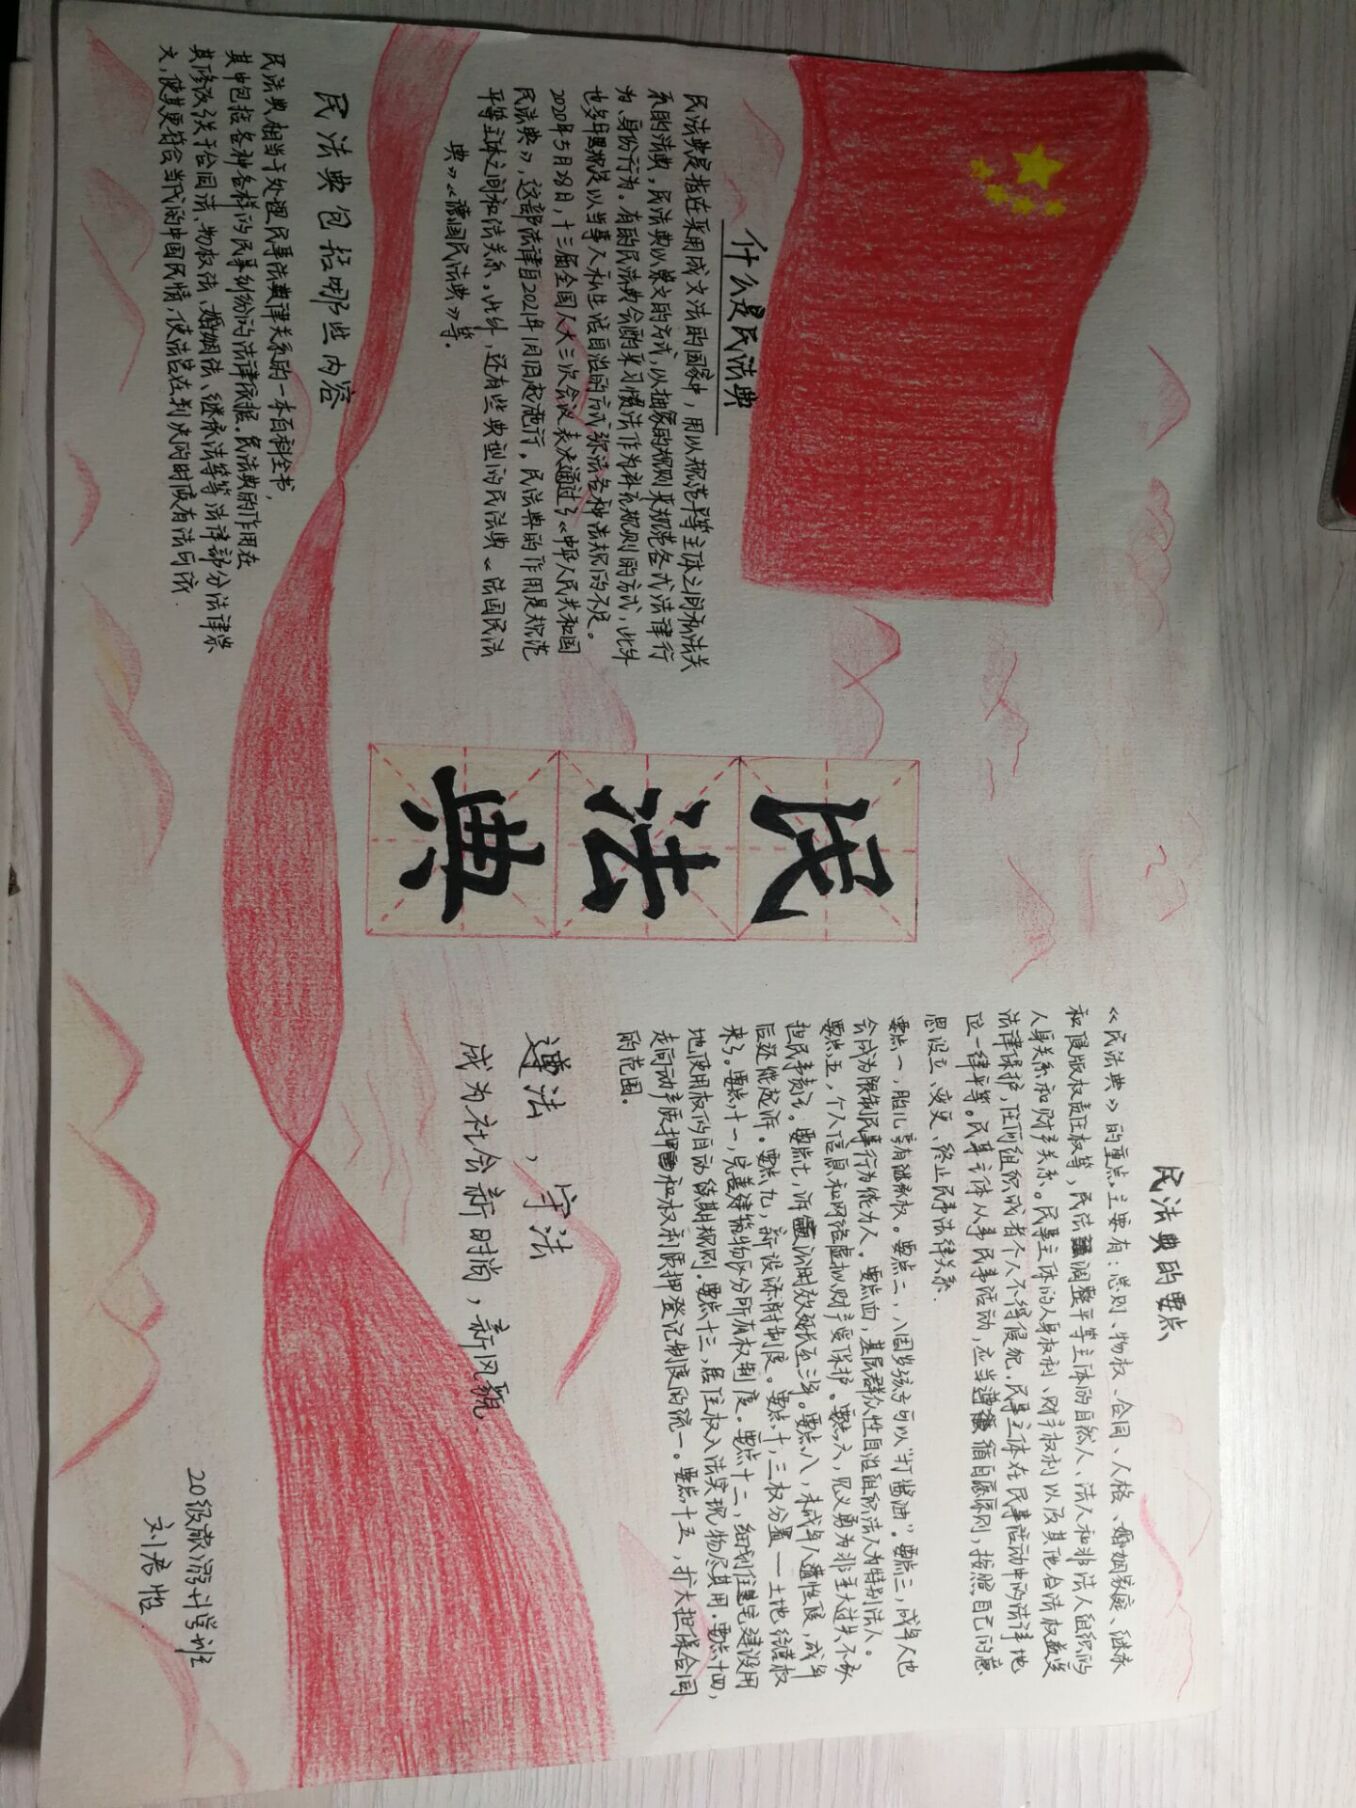 什么是民法典
民法典是指在采用成文法的国家中，用以规范平等主体之间私法关
系的法典，民法典以条文的方式，以抽象的规则来规范各式法律行
为、身份行为。有的民法典会酌采习惯法作为补充规则的方式，此外
也多半以当事人私生活自治的方式弥法各种法规的不足。
2020年5月28日，十三届全国人大三次会议表决通过了《中华人民共和国
民法典》，这部法律自2021年1月1日起施行，民法典的作用是规范
平等主体之间和法关系。此外，还有些典型的民法典《法国民法
典》《德国民法典》等。
民法典包括哪些内容
民法典相当于处理民事法律关系的一本百科全书，
其中包括各种各样的民事纠纷的法律依据。民法典的作用在
其修改关于合同法、物权法、婚姻法、继承法等等法律部分法律条
文，使其更符合当代的中国民情，使法官在判决的时候有法可依.
民法典
民法典的要点
《民法典》的重点.主要有：总则、物权、合同、人格、婚姻家庭、继承
和侵版权责任权等，民法调整平等主体的自然人、法人和非法人组织的
人身关系和财产关系。民事主体的人身权利、财产权利以及其他合法权益受
法律保护，任何组织或者个人不得侵犯.民事主体在民事活动中的法律地
位一律平等。民事主体从事民事活动，应当遵循自愿原则，按照自己的意
思设立、变更、终止民事法律关系.
要点一，胎儿享有继承权。要点二，八周岁孩子可以“打酱油”。要点三，成年人也
会成为限制民事行为能力人。要点四，基层群众性自治组织法人为特别法人。
要点五，个人信息和网络虚拟财产受保护。要点六，见义勇为非重大过失不承
担民事责任。要点七，诉讼时效延长至三年。要点八，未成年人遭性侵，成年
后还能起诉。要点九，新设添附制度。要点十，三权分置——土地经营权
来了。要点十一，完善建筑物区分所有权制度。要点十二，细划住宅建设用
地使用权的自动续期规则.要点十三，居住权入法实现物尽其用.要点十四，
走向动产质押和权利质押登记制度的统一。要点十五，扩大担保合同
的范围.
遵法，守法
成为社会新时尚，新风貌
20级旅游计学班
刘君怡